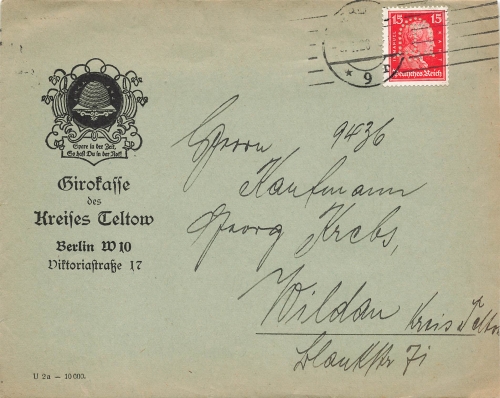 15 15
Deutsches Reich
9
Spare in der Zeit,
So hast Du in der Not!
Girokasse
des
Kreises Teltow
Berlin W 10
Viktoriastraße 17
Herrn 9436
Kaufmann
Georg Krebs,
Wildau Kreis Teltow
U 2a — 10 000.